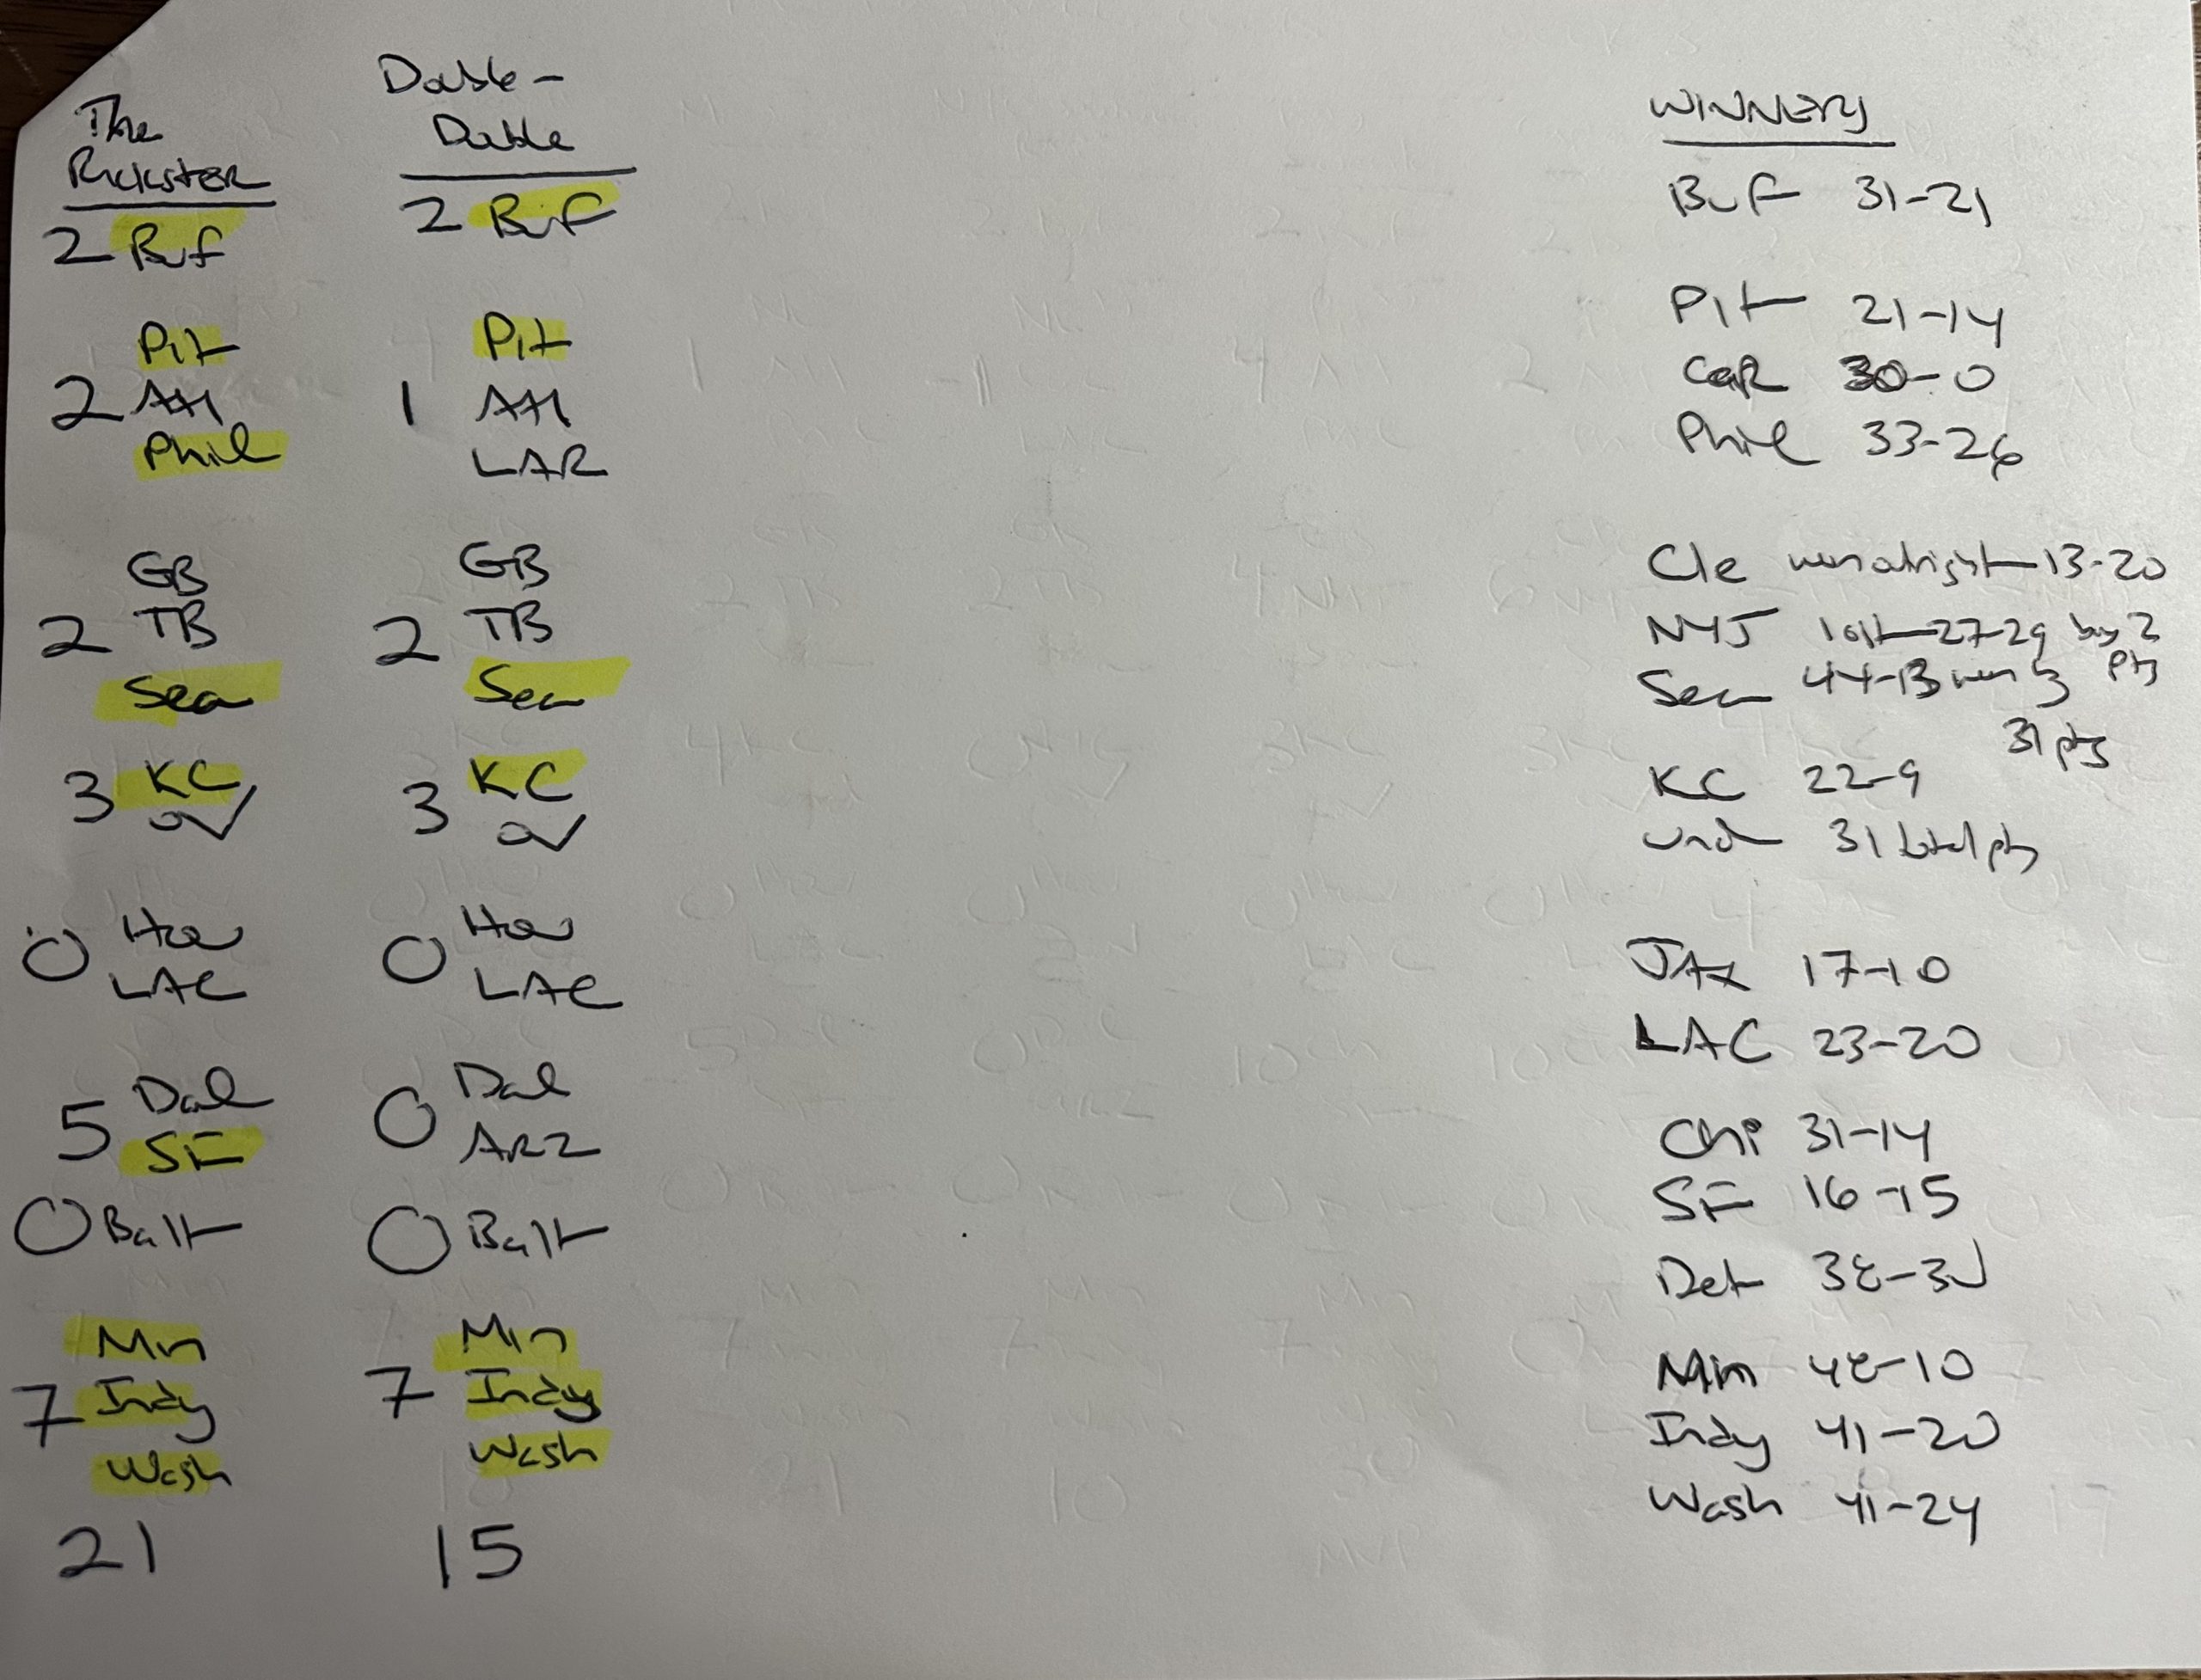 The
Rickster
2 Buf
Pit
2 Atl
Phil
GB
2 TB
Sea
3 KC
ov
0 Hou
LAC
5 Dal
SF
0 Balt
Min
7 Indy
Wash
21
Double-
Double
2 Buf
Pit
1 Atl
LAR
GB
2 TB
Sea
3 KC
ov
0 Hou
LAC
0 Dal
ARZ
0 Balt
Min
7 Indy
Wash
15
WINNERS
Buf 31-21
Pit 21-14
CAR 30-0
Phil 33-26
Cle won outright 13-20
NYJ lost 27-29 by 2
pts
Sea 44-13 won by
31 pts
KC 22-9
und 31 total pts
JAX 17-10
LAC 23-20
Chi 31-14
SF 16-15
Det 38-30
Min 48-10
Indy 41-20
Wash 41-24